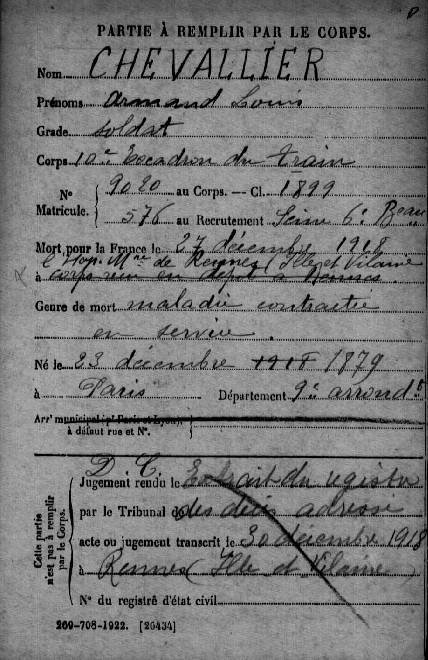 PARTIE À REMPLIR PAR LE CORPS.
Nom CHEVALLIER
Prénoms Armand Louis
Grade soldat
Corps 10e Escadron du train
N° Matricule. { 9020 au Corps. — Cl. 1899
576 au Recrutement Seine 6e Beau
Mort pour la France le 27 décembre 1918
l'Hop. Mre de Rennes (Ille et Vilaine
à corps rien en dépôt à Rennes.
Genre de mort maladie contractée
en service.
Né le 23 décembre 1918 1879
à Paris Département 9e arrondt
Arrt municipal (pr Paris et Lyon),
à défaut rue et N°.
D. C.
Cette partie n'est pas à remplir par le Corps.
Jugement rendu le Extrait du registre
par le Tribunal de des décès adresse
acte ou jugement transcrit le 30 décembre 1918
à Rennes (Ille et Vilaine)
N° du registre d'état civil
269-708-1922. [26434]